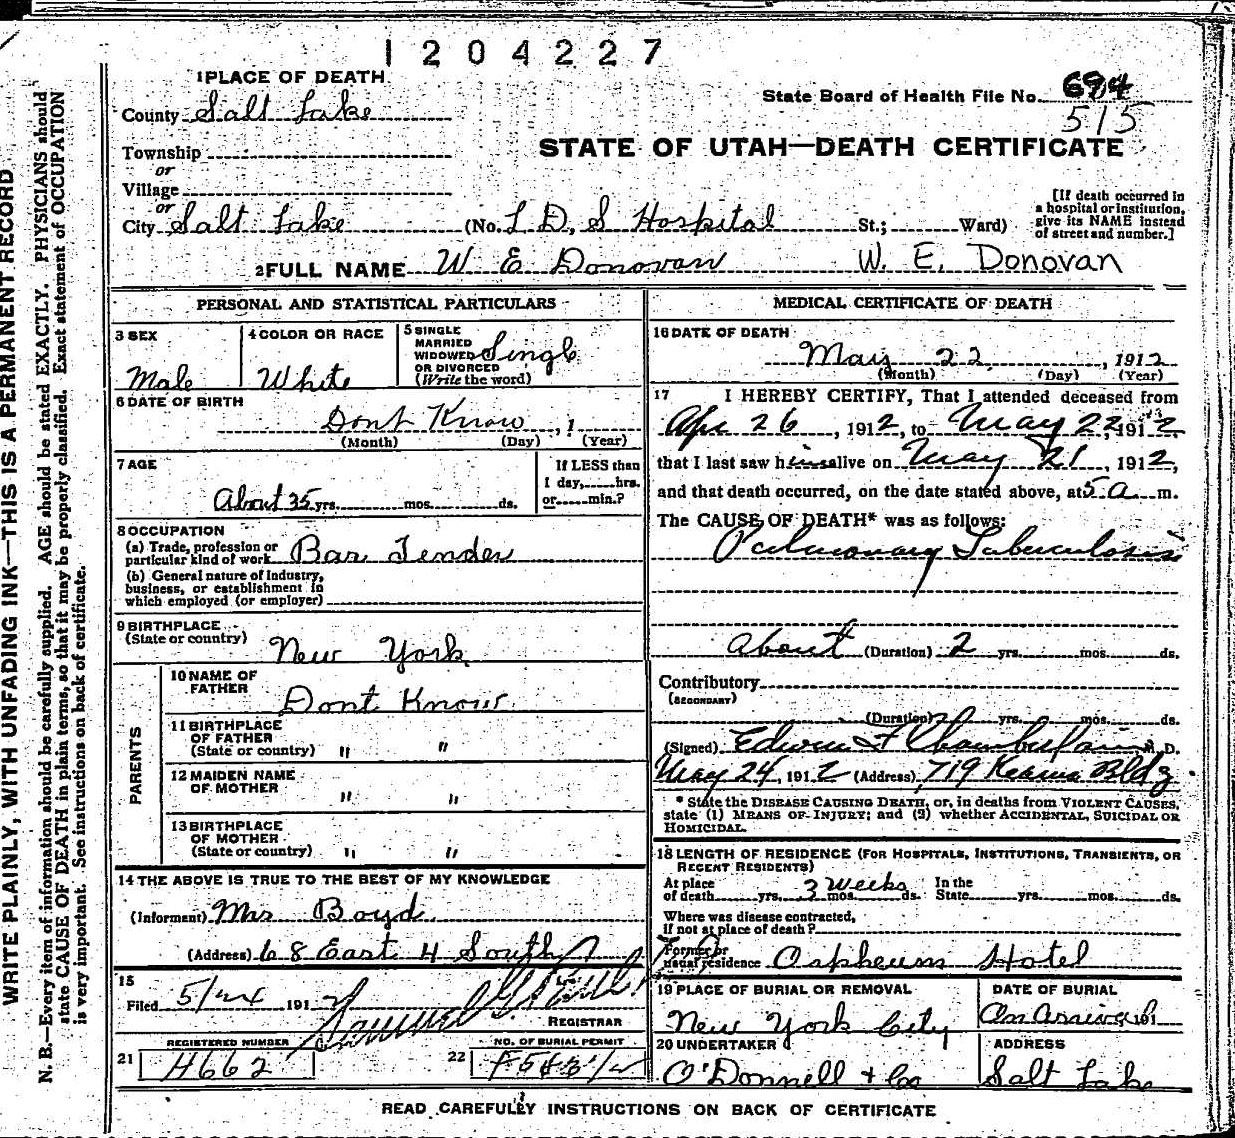 1204227
1 PLACE OF DEATH
State Board of Health File No. 694
515
County Salt Lake
STATE OF UTAH—DEATH CERTIFICATE
Township
or
Village
or
City Salt Lake (No. L. D. S Hospital St.; Ward)
[If death occurred in
a hospital or institution,
give its NAME instead
of street and number.]
2 FULL NAME W E Donovan W. E. Donovan
PERSONAL AND STATISTICAL PARTICULARS
3 SEX
Male
4 COLOR OR RACE
White
5 SINGLE
MARRIED
WIDOWED
OR DIVORCED
(Write the word)
Single
6 DATE OF BIRTH
Dont Know, 1
(Month) (Day) (Year)
7 AGE
About 35 yrs. mos. ds.
If LESS than
1 day, hrs.
or min.?
8 OCCUPATION
(a) Trade, profession or
particular kind of work Bar Tender
(b) General nature of industry,
business, or establishment in
which employed (or employer)
9 BIRTHPLACE
(State or country)
New York
PARENTS
10 NAME OF
FATHER
Dont Know
11 BIRTHPLACE
OF FATHER
(State or country) " "
12 MAIDEN NAME
OF MOTHER " "
13 BIRTHPLACE
OF MOTHER
(State or country) " "
14 THE ABOVE IS TRUE TO THE BEST OF MY KNOWLEDGE
(Informent) Mrs Boyd
(Address) 68 East 4 South
15
Filed 5/24 191 2
REGISTRAR
REGISTERED NUMBER
21 H662
NO. OF BURIAL PERMIT
22
MEDICAL CERTIFICATE OF DEATH
16 DATE OF DEATH
May 22, 1912
(Month) (Day) (Year)
17 I HEREBY CERTIFY, That I attended deceased from
Apr 26, 1912, to May 22, 1912,
that I last saw him alive on May 21, 1912,
and that death occurred, on the date stated above, at 5 a m.
The CAUSE OF DEATH* was as follows:
Pulmonary Tuberculosis
About (Duration) 2 yrs. mos. ds.
Contributory
(SECONDARY)
(Duration) yrs. mos. ds.
(Signed) Edwin F Chamberlain, M. D.
May 24, 1912 (Address) 719 Kearns Bldg.
* State the DISEASE CAUSING DEATH, or, in deaths from VIOLENT CAUSES,
state (1) MEANS OF INJURY; and (2) whether ACCIDENTAL, SUICIDAL OR
HOMICIDAL.
18 LENGTH OF RESIDENCE (FOR HOSPITALS, INSTITUTIONS, TRANSIENTS, OR
RECENT RESIDENTS)
At place
of death yrs. 3 Weeks mos. ds. In the
State yrs. mos. ds.
Where was disease contracted,
if not at place of death?
Former or
usual residence Orpheum Hotel
19 PLACE OF BURIAL OR REMOVAL
New York City
DATE OF BURIAL
On Arrival 191
20 UNDERTAKER
O'Donnell + Co
ADDRESS
Salt Lake
READ CAREFULLY INSTRUCTIONS ON BACK OF CERTIFICATE
WRITE PLAINLY, WITH UNFADING INK—THIS IS A PERMANENT RECORD
N. B.—Every item of information should be carefully supplied. AGE should be stated EXACTLY. PHYSICIANS should
state CAUSE OF DEATH in plain terms, so that it may be properly classified. Exact statement of OCCUPATION
is very important. See instructions on back of certificate.